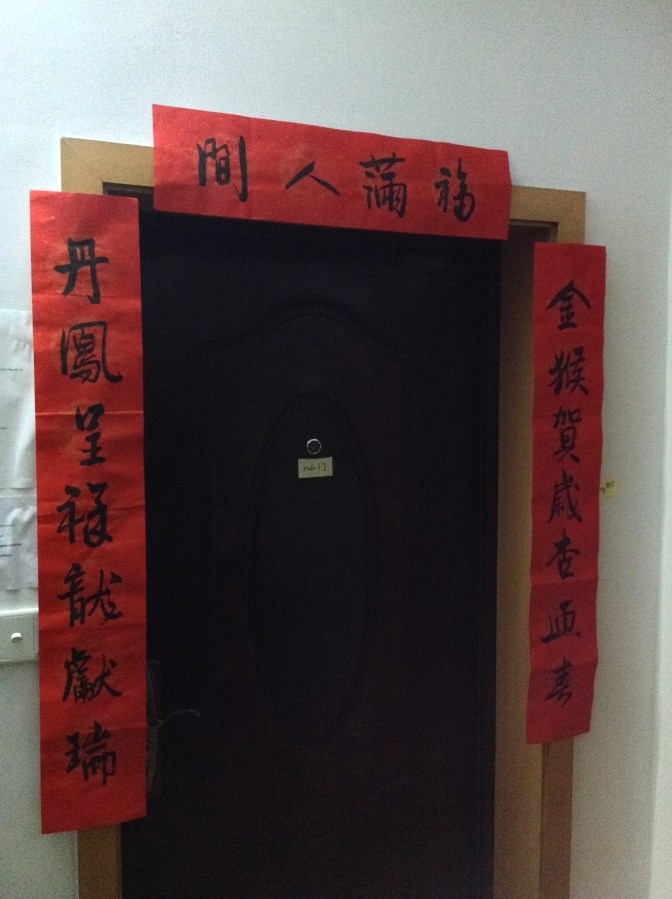 福滿人間
金猴賀歲杏迎春
丹鳳呈祥龍獻瑞